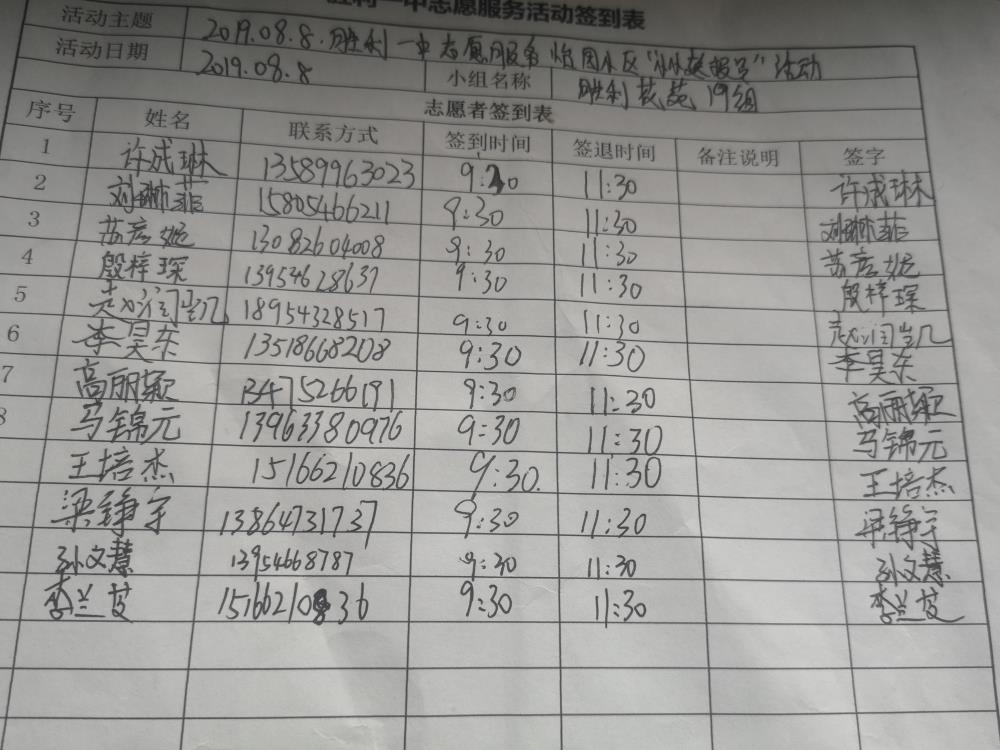 胜利一中志愿服务活动签到表
活动主题 2019.08.8.胜利一中志愿服务 怡园小区 活动
活动日期 2019.08.8 小组名称 胜利花苑19组
志愿者签到表
序号 姓名 联系方式 签到时间 签退时间 备注说明 签字
1 许成琳 13589963023 9:20 11:30 许成琳
2 刘琳菲 15805466211 9:30 11:30 刘琳菲
3 苏彦妮 13082604008 9:30 11:30 苏彦妮
4 殷梓琛 13954628637 9:30 11:30 殷梓琛
5 18954328517 9:30 11:30
6 李昊东 13518668208 9:30 11:30 李昊东
7 高丽颖 13475266191 9:30 11:30 高丽颖
8 马锦元 13963380976 9:30 11:30 马锦元
王培杰 15166210836 9:30. 11:30 王培杰
梁铮宇 13864731737 9:30 11:30 梁铮宇
孙文慧 13954668787 9:30 11:30 孙文慧
李兰芝 15166210836 9:30 11:30 李兰芝